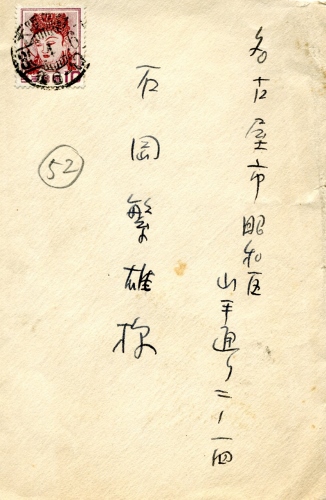 名古屋市昭和区
山手通り二ノ一四
石岡繁雄様
52
10